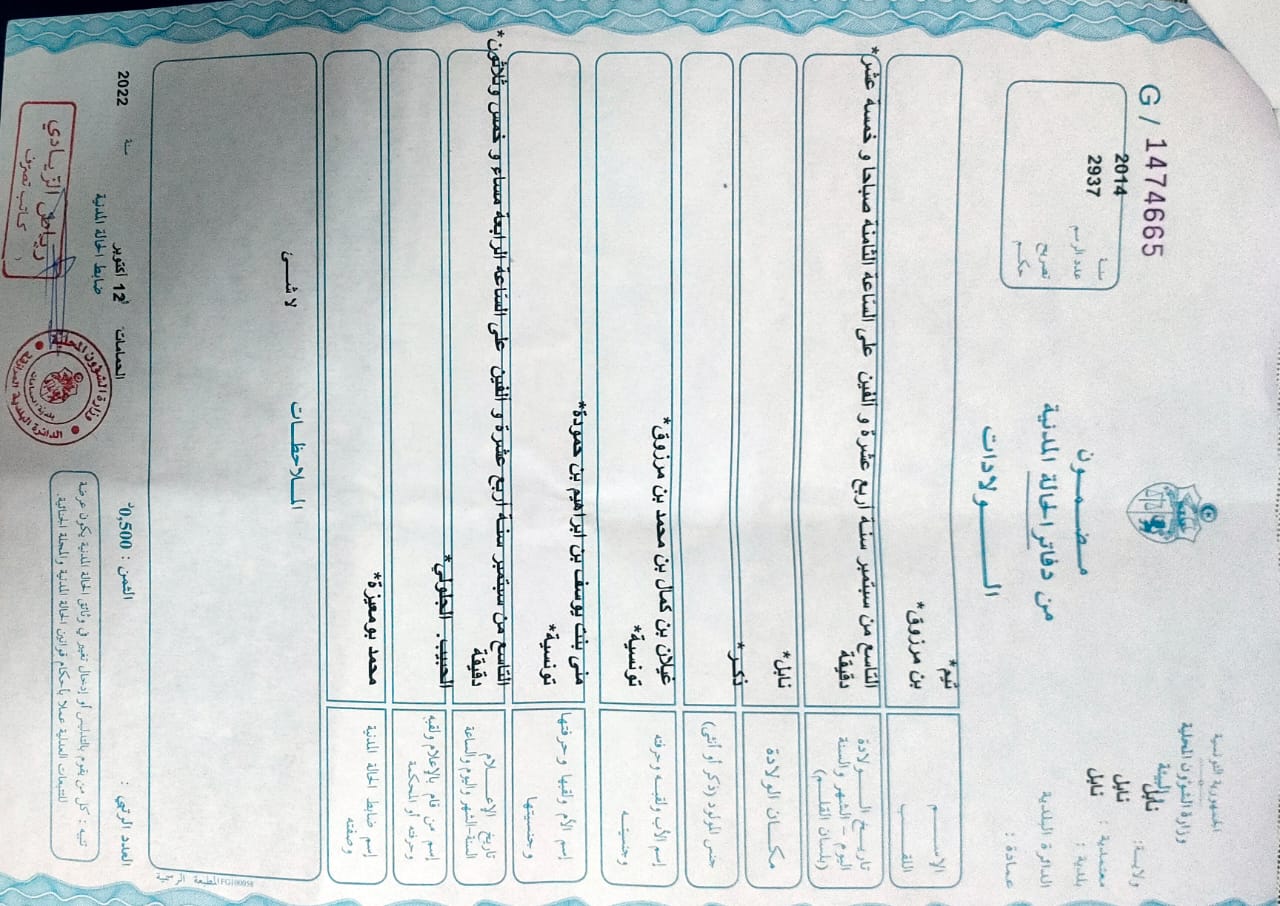 G / 1474665
الجمهورية التونسية
وزارة الشؤون المحلية
والبيئة
ولاية: نابل
معتمدية : نابل
بلدية : نابل
الدائرة البلدية
عمادة :
مضمون
من دفاتر الحالة المدنية
الولادات
سنة 2014
عدد الرسم 2937
تصريح
حكم
الاسم تيم*
اللقب بن مرزوق*
تاريخ الولادة التاسع من سبتمبر سنة أربع عشرة و الفين على الساعة الثامنة صباحا و خمسة عشر*
اليوم - الشهر والسنة دقيقة
(بلسان القلم)
مكان الولادة نابل*
جنس المولود (ذكر أو أنثى) ذكر*
إسم الأب ولقبه وحرفته غيلان بن كمال بن محمد بن مرزوق*
وجنسيته تونسية*
إسم الأم ولقبها وحرفتها منى بنت يوسف بن ابراهيم بن حمودة*
وجنسيتها تونسية*
تاريخ الإعلام التاسع من سبتمبر سنة أربع عشرة و الفين على الساعة الرابعة مساء و خمس وثلاثون*
السنة-الشهر واليوم والساعة دقيقة
إسم من قام بالإعلام ولقبه الحبيب. الجلولي*
وحرفته أو المحكمة
إسم ضابط الحالة المدنية محمد بومعيزة*
وصفته
الملاحظات
لا شيء
المطبعة الرسمية
العدد الرتبي :
الثمن : 0,500د
الحمامات 12 أكتوبر سنة 2022
ضابط الحالة المدنية
رياض الزيادي
كاتب تصرف
وزارة الشؤون المحلية
بلدية الحمامات
تنبيه : كل من يقوم بالتدليس أو إدخال تغيير في وثائق الحالة المدنية يكون عرضة
للتتبعات العدلية عملا بأحكام قوانين الحالة المدنية والمجلة الجنائية.